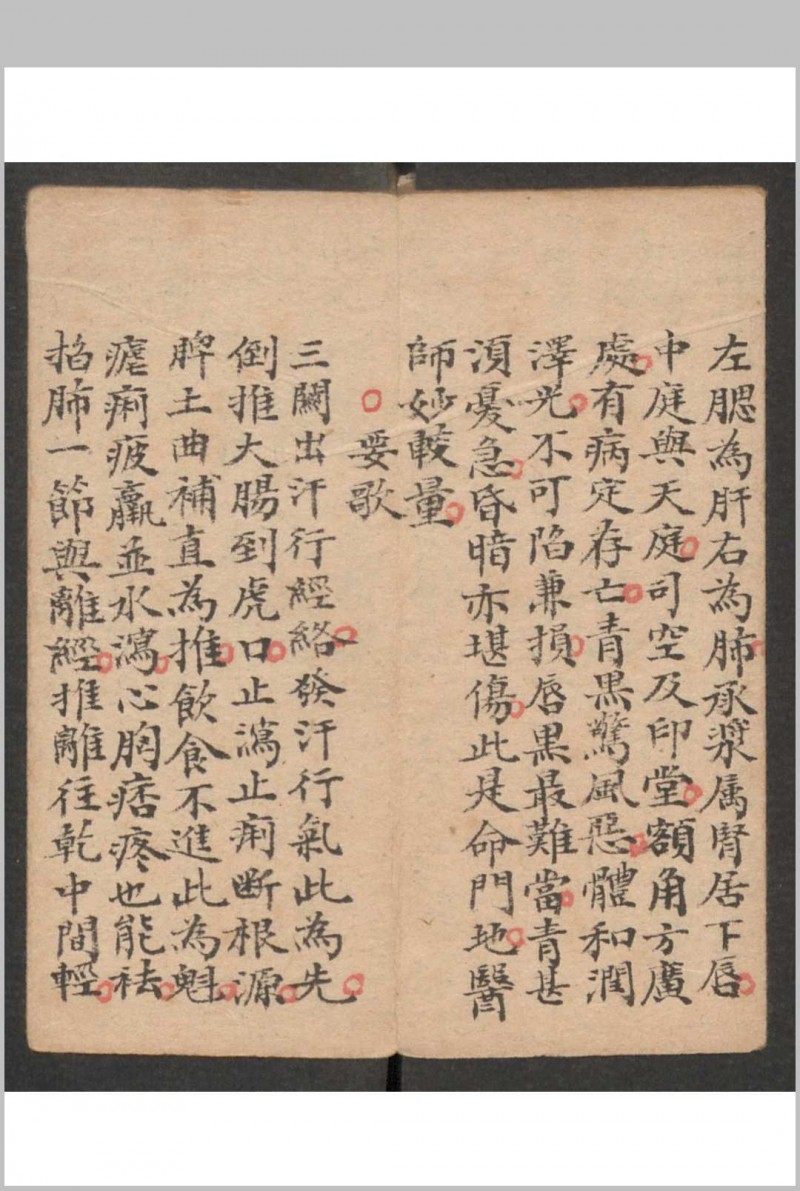 左腮為肝右為肺承漿属腎居下唇
中庭與天庭司空及印堂額角方廣
處有病定存亡青黒驚風惡體和潤
澤光不可陷兼損唇黒最難當青甚
須憂急昏暗亦堪傷此是命門地醫
師妙較量
要歌
三關出汗行經絡發汗行氣此為先
倒推大腸到虎口止瀉止痢断根源
脾土曲補直為推飲食不進此為魁
瘧痢疲羸並水瀉心胸痞疼也能袪
掐肺一節與離經推離往乾中間輕